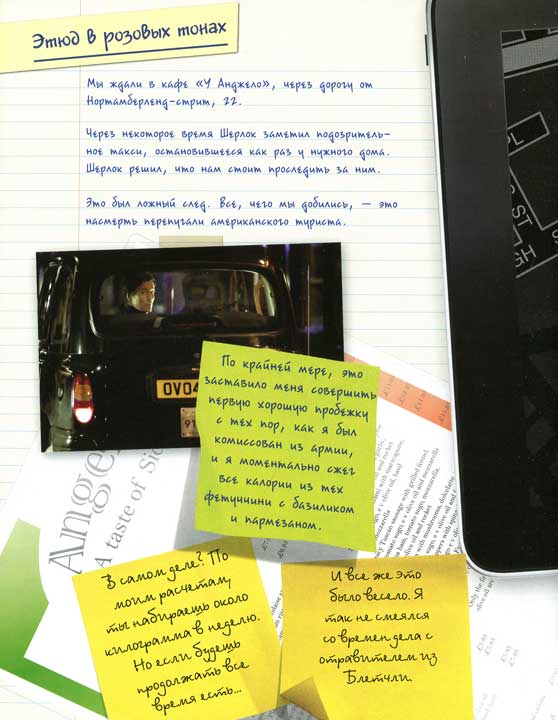 Этюд в розовых тонах
Мы ждали в кафе «У Анджело», через дорогу от
Нортамберленд-стрит, 22.
Через некоторое время Шерлок заметил подозритель-
ное такси, остановившееся как раз у нужного дома.
Шерлок решил, что нам стоит проследить за ним.
Это был ложный след. Все, чего мы добились, — это
насмерть перепугали американского туриста.
OV04
91
По крайней мере, это
заставило меня совершить
первую хорошую пробежку
с тех пор, как я был
комиссован из армии,
и я моментально сжег
все калории из тех
фетучини с базиликом
и пармезаном.
Ange
A taste of Sic
В самом деле? По
моим расчетам,
ты набираешь около
килограмма в неделю.
Но если будешь
продолжать все
время есть...
И все же это
было весело. Я
так не смеялся
со времен дела с
отравителем из
Блетчли.
ST